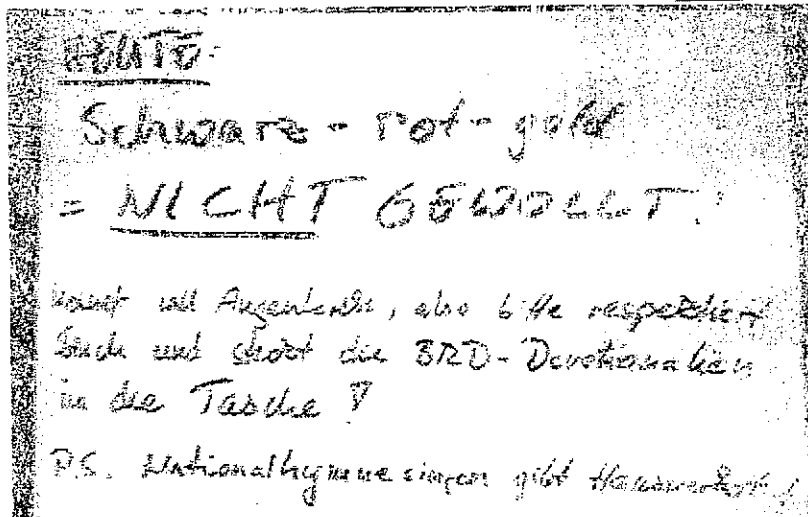 HEUTE:
Schwarz-rot-gold
= NICHT GEWOLLT!
, also bitte respektiert
Euch und die BRD-Devotionalien
in die Tasche!
P.S. Nationalhymne singen gibt Hausverbot!